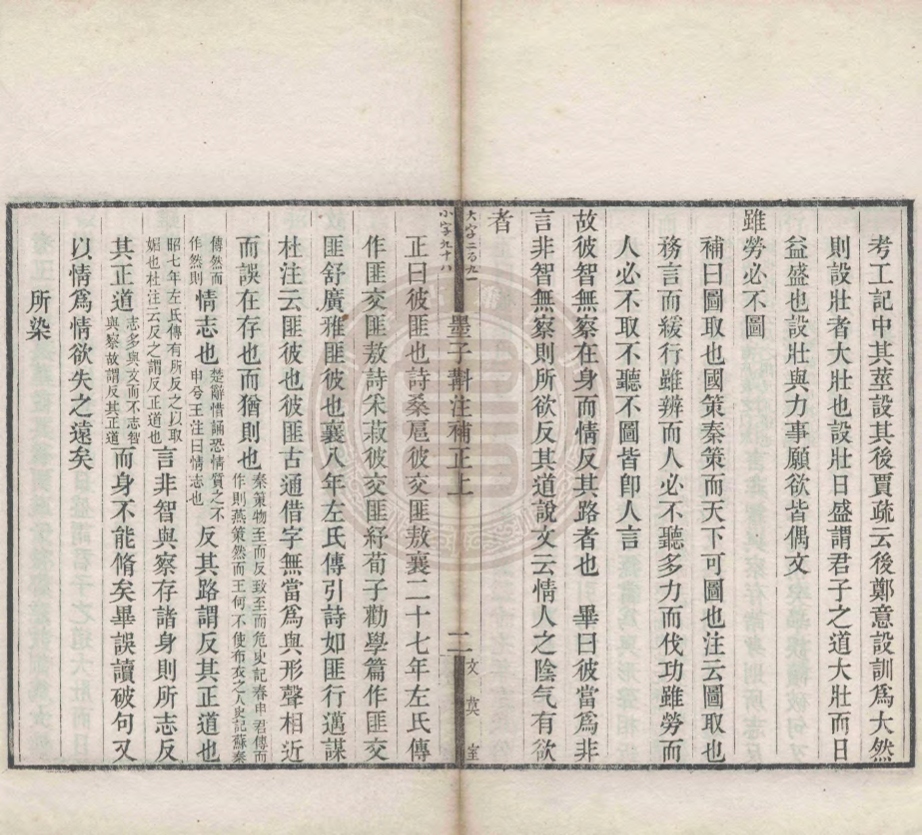 考工記中其莖設其後賈疏云後鄭意設訓爲大然
則設壯者大壯也設壯日盛謂君子之道大壯而日
益盛也設壯與力事願欲皆偶文
雖勞必不圖
補曰圖取也國策秦策而天下可圖也注云圖取也
務言而緩行雖辨而人必不聽多力而伐功雖勞而
人必不取不聽不圖皆卽人言
故彼智無察在身而情反其路者也　畢曰彼當爲非
言非智無察則所欲反其道說文云情人之陰气有欲
者
大字二百九一
小字九十八
墨子斠注補正上
二
文莫室
正曰彼匪也詩桑扈彼交匪敖襄二十七年左氏傳
作匪交匪敖詩采菽彼交匪紓荀子勸學篇作匪交
匪舒廣雅匪彼也襄八年左氏傳引詩如匪行邁謀
杜注云匪彼也彼匪古通借字無當爲與形聲相近
而誤在存也而猶則也秦策物至而反致至而危史記春申君傳而
作則燕策然而王何不使布衣之人史記蘇秦
傳然而
作然則情志也楚辭惜誦恐情質之不
申兮王注曰情志也反其路謂反其正道也
昭七年左氏傳有所反之以取
媚也杜注云反之謂反正道也言非智與察存諸身則所志反
其正道志多與文而不志智
與察故謂反其正道而身不能脩矣畢誤讀破句又
以情爲情欲失之遠矣
所染